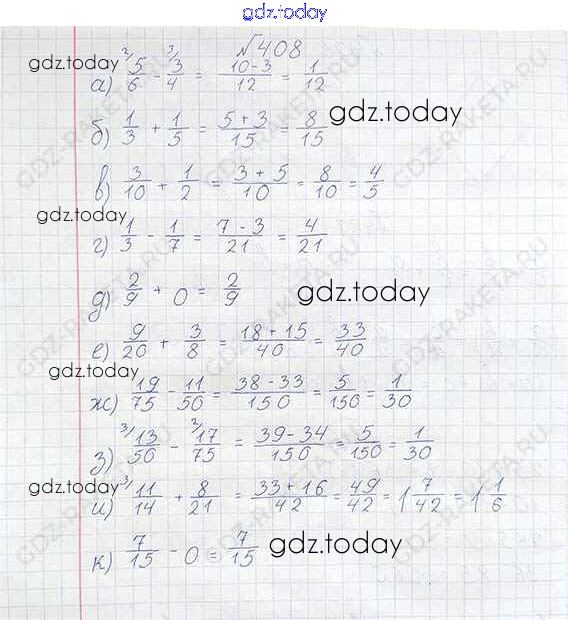 gdz.today
№408
gdz.today
а) ²5/6 - ³3/4 = (10-3)/12 = 1/12
б) 1/3 + 1/5 = (5+3)/15 = 8/15 gdz.today
в) 3/10 + 1/2 = (3+5)/10 = 8/10 = 4/5
gdz.today
г) 1/3 - 1/7 = (7-3)/21 = 4/21
д) 2/9 + 0 = 2/9 gdz.today
е) 9/20 + 3/8 = (18+15)/40 = 33/40
gdz.today
ж) 19/75 - 11/50 = (38-33)/150 = 5/150 = 1/30
з) ³13/50 - ²17/75 = (39-34)/150 = 5/150 = 1/30
gdz.today
и) ³11/14 + 8/21 = (33+16)/42 = 49/42 = 1 7/42 = 1 1/6
к) 7/15 - 0 = 7/15 gdz.today
GDZ-RAKETA.RU